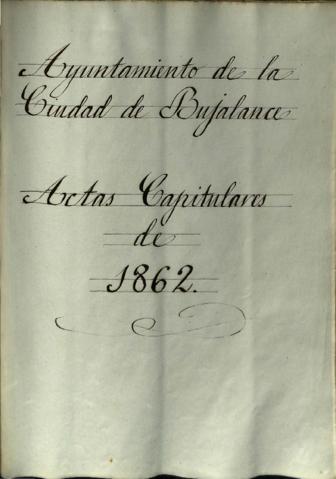 Ayuntamiento de la
Ciudad de Bujalance
Actas Capitulares
de
1862.